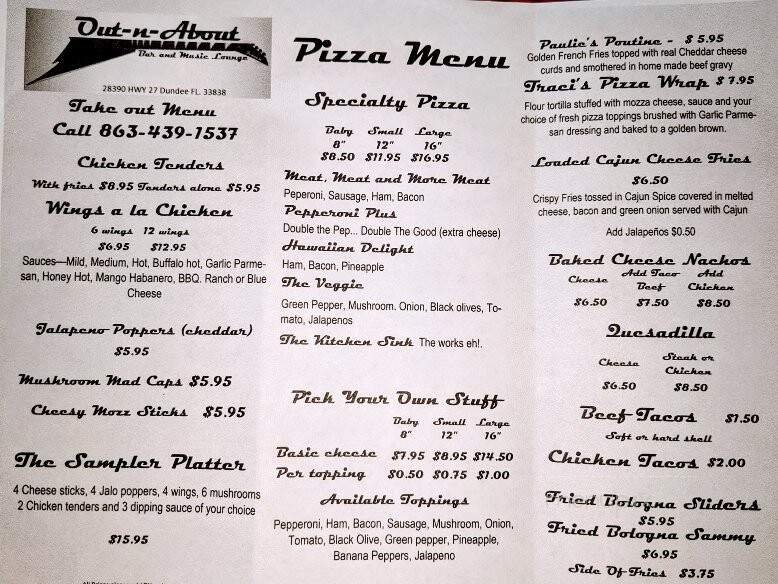 Out-n-About
Bar and Music Lounge
28390 HWY 27 Dundee FL. 33838
Take out Menu
Call 863-439-1537
Chicken Tenders
With fries $8.95 Tenders alone $5.95
Wings a la Chicken
6 wings 12 wings
$6.95 $12.95
Sauces—Mild, Medium, Hot, Buffalo hot, Garlic Parme-
san, Honey Hot, Mango Habanero, BBQ. Ranch or Blue
Cheese
Jalapeno Poppers (cheddar)
$5.95
Mushroom Mad Caps $5.95
Cheesy Mozz Sticks $5.95
The Sampler Platter
4 Cheese sticks, 4 Jalo poppers, 4 wings, 6 mushrooms
2 Chicken tenders and 3 dipping sauce of your choice
$15.95
Pizza Menu
Specialty Pizza
Baby Small Large
8" 12" 16"
$8.50 $11.95 $16.95
Meat, Meat and More Meat
Peperoni, Sausage, Ham, Bacon
Pepperoni Plus
Double the Pep... Double The Good (extra cheese)
Hawaiian Delight
Ham, Bacon, Pineapple
The Veggie
Green Pepper, Mushroom. Onion, Black olives, To-
mato, Jalapenos
The Kitchen Sink The works eh!.
Pick Your Own Stuff
Baby Small Large
8" 12" 16"
Basic cheese $7.95 $8.95 $14.50
Per topping $0.50 $0.75 $1.00
Available Toppings
Pepperoni, Ham, Bacon, Sausage, Mushroom, Onion,
Tomato, Black Olive, Green pepper, Pineapple,
Banana Peppers, Jalapeno
Paulie's Poutine - $ 5.95
Golden French Fries topped with real Cheddar cheese
curds and smothered in home made beef gravy
Traci's Pizza Wrap $ 7.95
Flour tortilla stuffed with mozza cheese, sauce and your
choice of fresh pizza toppings brushed with Garlic Parme-
san dressing and baked to a golden brown.
Loaded Cajun Cheese Fries
$6.50
Crispy Fries tossed in Cajun Spice covered in melted
cheese, bacon and green onion served with Cajun
Add Jalapeños $0.50
Baked Cheese Nachos
Cheese Add Taco Add
Beef Chicken
$6.50 $7.50 $8.50
Quesadilla
Cheese Steak or
Chicken
$6.50 $8.50
Beef Tacos $1.50
Soft or hard shell
Chicken Tacos $2.00
Fried Bologna Sliders
$5.95
Fried Bologna Sammy
$6.95
Side Of Fries $3.75